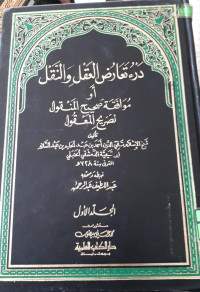 درء تعارض العقل والنقل
أو
موافقة صحيح المنقول
لصريح المعقول
تأليف
شيخ الإسلام تقي الدين أحمد بن عبد الحليم بن عبد السلام
ابن تيمية
المتوفى سنة ٧٢٨ هـ
عبد اللطيف عبد الرحمن
المجلد الأول
دار الكتب العلمية